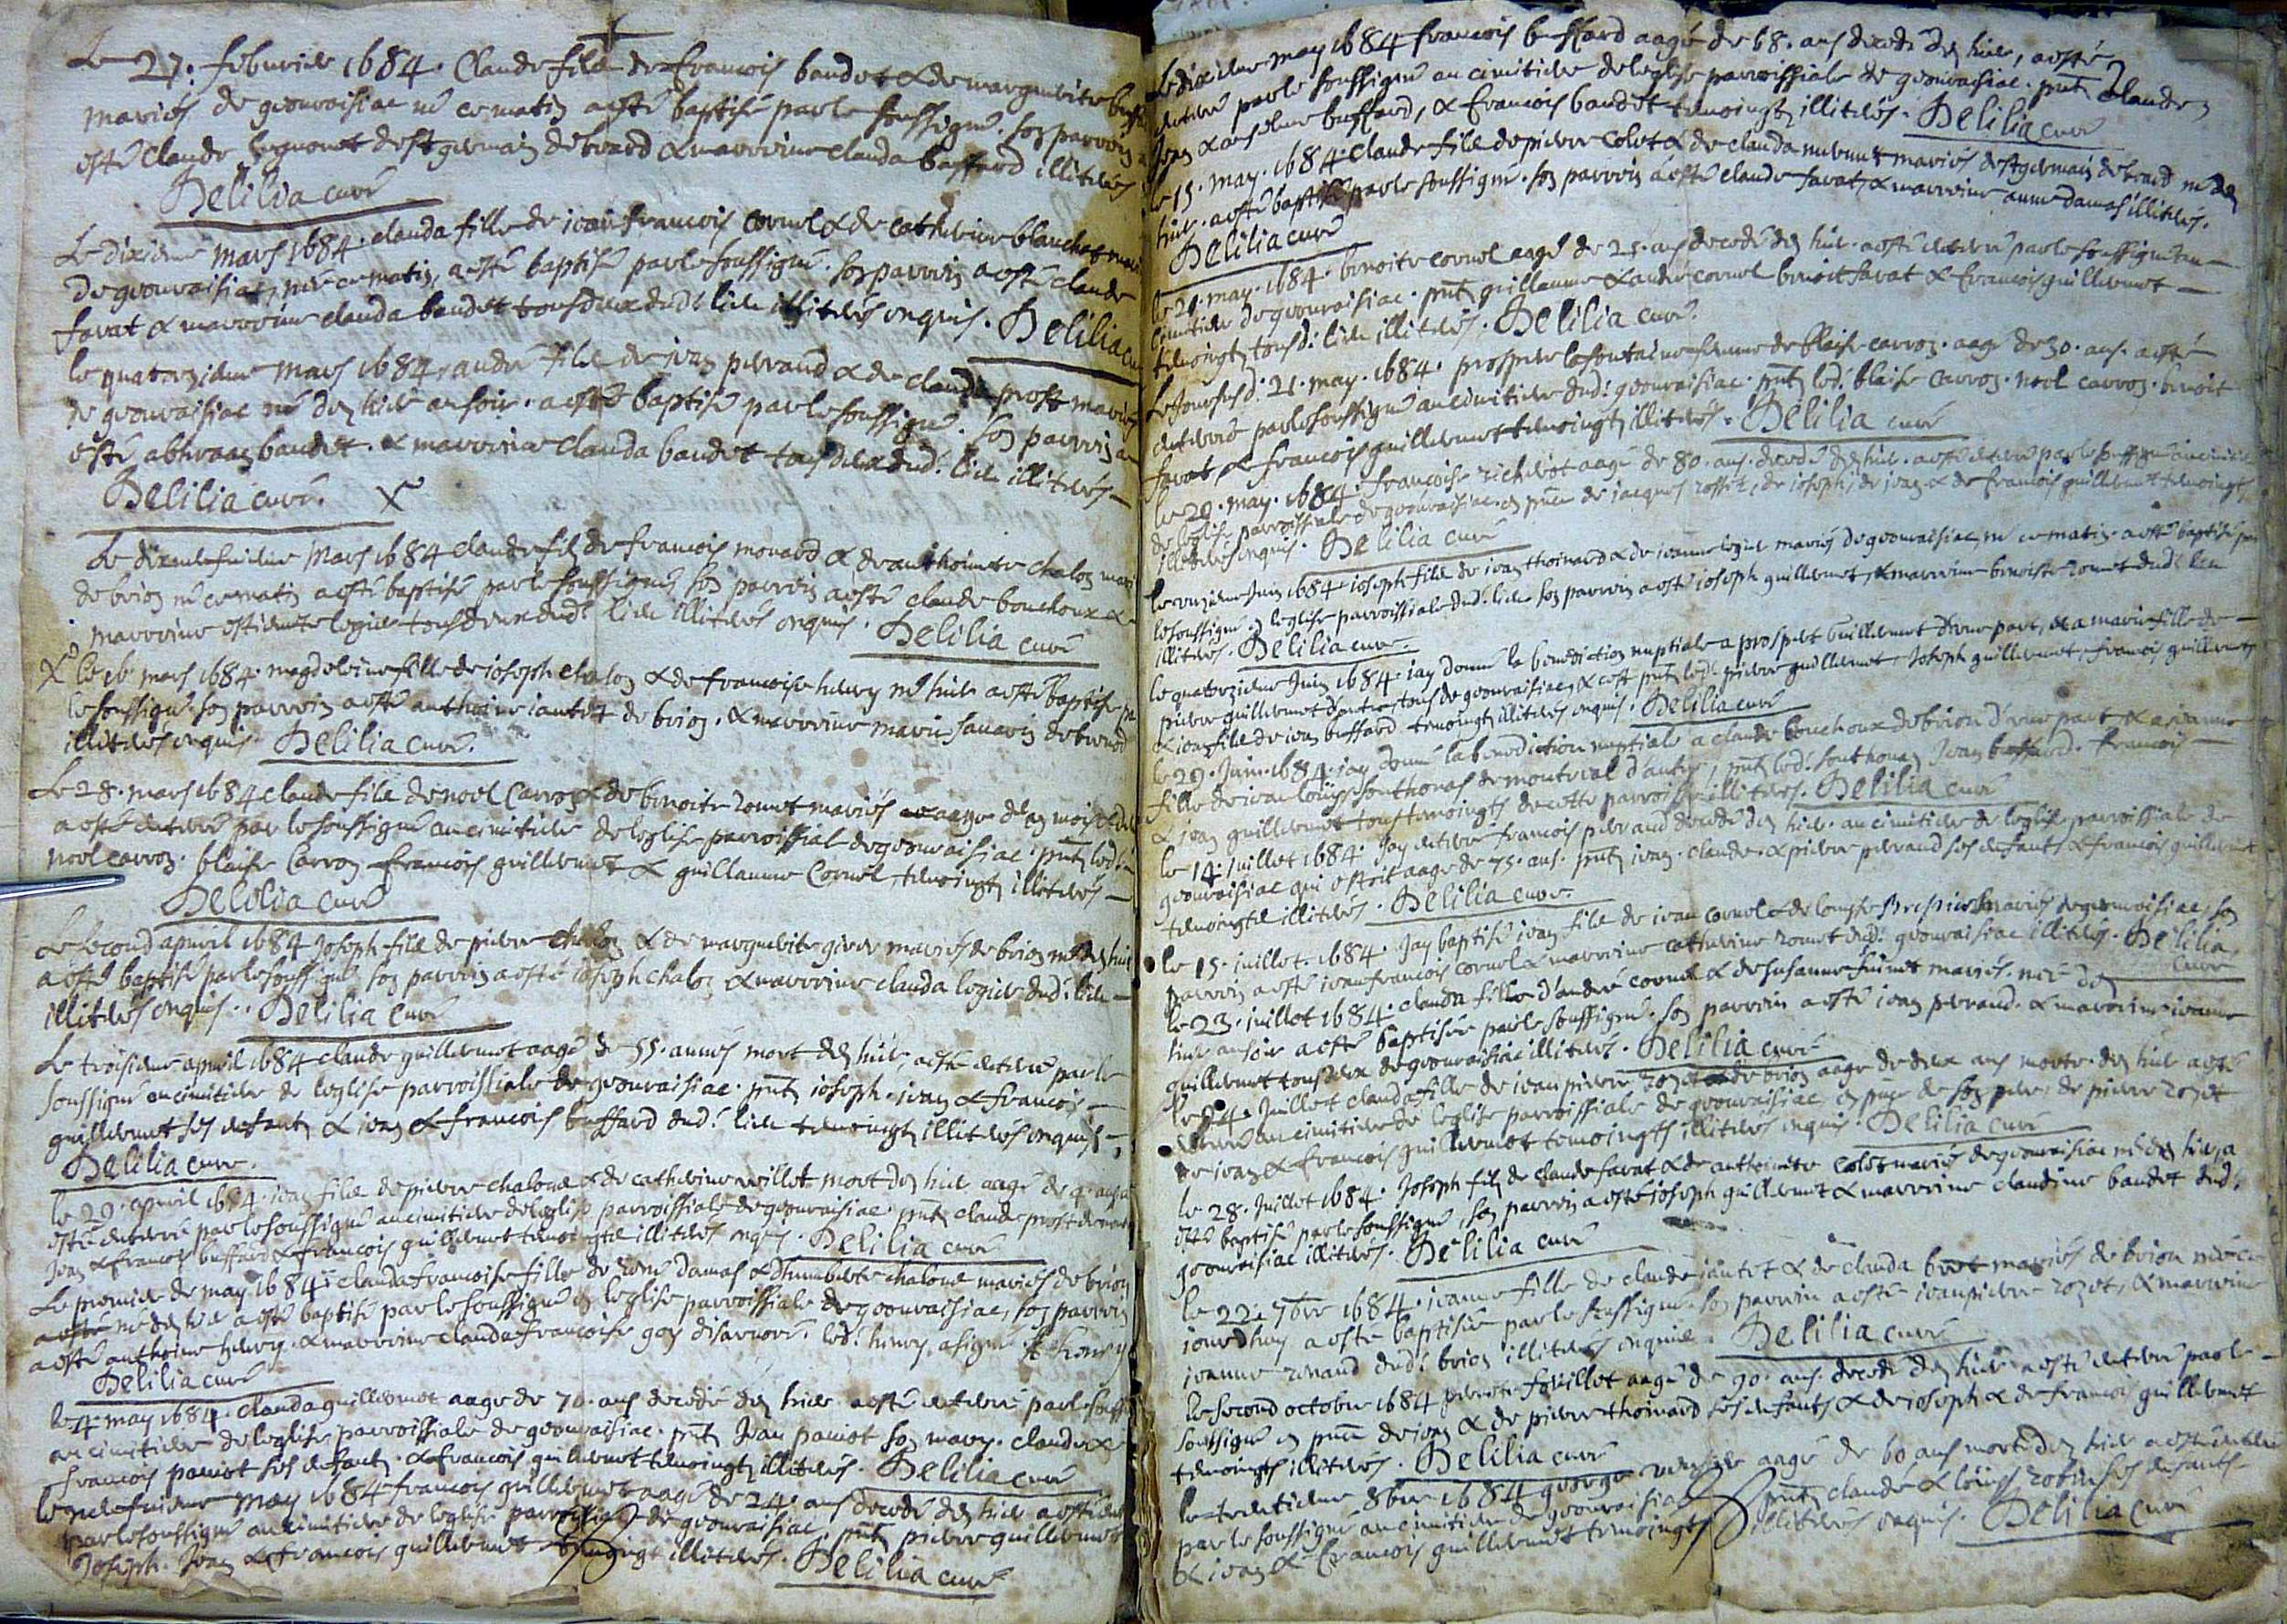 Le 27. feburier 1684. Claude filz de francois baudet & de marguerite
mariés de geouraisiac né ce matin a esté baptisé par le soussigné. son parrin a
esté Claude de st germain de beard & marrine clauda baffard illiterés
Delilia curé
Le dixieme mars 1684. clauda fille de ian francois cornel & de catherine blanchet
de geouraisiac, née ce matin, a esté baptisé par le soussigné. son parrin a esté claude
favat & marrine clauda baudet tous deux dud. lieu illiterés enquis. Delilia
le quatorzieme mars 1684, andré filz de ian perraud & de clauda prost mariés
de geouraisiac né den hier au soir. a esté baptisé par le soussigné. son parrin a
esté abhraan baudet. & marrine clauda baudet tous deux dud. lieu illiterés
Delilia curé. X
Le dixneufieme Mars 1684 claude filz de francois monard & de anthoinete chalon
de brion né ce matin a esté baptisé par le soussigné, son parrin a esté claude bouchoux &
marrine estienete logier tous deux dud. lieu illiterés enquis. Delilia curé
X Le 16 mars 1684. magdeleine fille de ioseph chalon & de francoise henry né hier a esté baptisé
le soussigné. son parrin a esté anthoine iantet de brion. & marrine marie savarin
illiterés enquis. Delilia curé.
Le 28. mars 1684 claude filz de noel Carron & de benoite romet mariés aage d'un mois
a esté enterré par le soussigné au cimitiere de leglise parroissial de geouraisiac. pnt led.
noel carron. blaise Carron francois guillermet & guillaume Cornel, temoingtz illiterés
Delilia curé
Le second apvril 1684 Joseph filz de pierre chalon & de marguerite mariés de brion né den hier
a esté baptisé par le soussigné son parrin a esté ioseph chalon & marrine clauda logier dud. lieu
illiterés enquis. Delilia curé
Le troisieme apvril 1684 claude guillermet aagé de 55. annés mort den hier, a esté enterré par le
soussigné au cimitiere de leglise parroissiale de geouraisiac. pnt ioseph. ian & francois
guillermet ses enfants & ian & francois buffard dud. lieu temoingtz illiterés enquis
Delilia curé.
le 29. apvril 1684. ian filz de pierre chalond & de catherine mort den hier aagé de
esté enterré par le soussigné au cimitiere de leglise parroissiale de geouraisiac. pnt claude prost
ian & francois buffard & francois guillermet temoingtz illiterés enquis. Delilia curé
Le premier de may 1684 clauda francoise fille de damas & chalond mariés de brion
né den hier a esté baptisé par le soussigné en leglise parroissiale de geouraisiac, son parrin
a esté anthoine henry. & marrine clauda francoise goy. led. henry a signé henry
Delilia curé
le 4. may 1684. clauda guillermet aagé de 70. ans decedé den hier a esté enterré par le
au cimitiere de leglise parroissiale de geouraisiac. pnt Jean paniot son mary. claude &
francois paniot ses enfants. & francois guillermet temoingtz illiterés. Delilia curé
le neufieme may 1684 francois guillermet aagé de 24. ans decedé den hier a esté
par le soussigné au cimitiere de leglise parroissiale de geouraisiac. pnt pierre guillermet
Joseph. Jean & francois guillermet temoingtz illiterés. Delilia curé
Le dixieme may 1684 francois buffard aagé de 68. ans decedé den hier, a esté
enterré par le soussigné au cimitiere de leglise parroissiale de geouraisiac. pnt Claude
Jean & anselme buffard, & francois baudet temoingtz illiterés. Delilia curé
le 15. may. 1684. Claude filz de pierre Colet & de clauda mariés de st germain de beard né den
hier. a esté baptisé par le soussigné. son parrin a esté claude favat, & marrine anne damas illiterés.
Delilia curé
le 21. may. 1684. benoite cornel aagé de 25. ans decedé den hier. a esté enterré par le soussigné au
cimitiere de geouraisiac. pnt guillaume & andré cornel benoit favat & francois guillermet
temoingtz tous d. lieu illiterés. Delilia curé.
Le 21. may. 1684. lafontaine femme de blaise carron. aagé de 30. ans. a esté
enterré par le soussigné au cimitiere dud. geouraisiac. pnt led. blaise Carron. noel carron. benoit
favat & francois guillermet temoingtz illiterés. Delilia curé
le 29. may. 1684. francoise richerot aagé de 80. ans. decedé den hier. a esté enterré par le soussigné au cimitiere
de leglise parroissiale de geouraisiac. en pnce de iacques, de ioseph, de ian & de francois guillermet temoingtz
illiterés enquis. Delilia curé
le onzieme Juin 1684 ioseph filz de ian thoinard & de ianne logier mariés de geouraisiac, né ce matin. a esté baptisé par
le soussigné en leglise parroissiale dud. lieu son parrin a esté ioseph guillermet, & marrine benoiste romet dud. lieu
illiterés. Delilia curé.
le quatorzieme Juin 1684. iay donné la benediction nuptiale a prosper guillermet d'une part, & a marie fille de
pierre guillermet d'autre, tous de geouraisiac, & ce pnt led. pierre guillermet. Joseph guillermet, francois guillermet
& ian filz de ian buffard temoingtz illiterés enquis. Delilia curé
le 29. Juin. 1684. iay donné la benediction nuptiale a claude bouchoux de brion d'une part & a ianne
fille de ian louys southonas de montreal d'autre, pnt led. southonas Jean buffard. francois
& ian guillermet tous temoingtz de cette parroisse illiterés. Delilia curé
le 14. iuillet 1684. Jay enterré francois perraud decedé den hier. au cimitiere de leglise parroissiale de
geouraisiac qui estoit aagé de 75. ans. pnt ian. claude. & pierre perraud ses enfants & francois guillermet
temoingtz illiterés. Delilia curé.
le 15. iuillet. 1684. Jay baptisé ian filz de ian cornel & de mariés de geouraisiac, son
parrin a esté ian francois cornel & marrine catherine romet dud. geouraisiac illiterés. Delilia curé
le 23. iuillet 1684. clauda fille d'andré cornel & de susanne mariés. née den
hier au soir a esté baptisée par le soussigné. son parrin a esté ian perraud. & marrine ianne
guillermet tous deux de geouraisiac illiterés. Delilia curé
le 24. Juillet clauda fille de ian pierre de brion aagé de deux ans morte den hier a esté
enterré au cimitiere de leglise parroissiale de geouraisiac, en pnce de son pere, de pierre rozet
de ian & francois guillermet temoingts illiterés enquis. Delilia curé
le 28. Juillet 1684. Joseph filz de claude favat & de anthoinete Colet mariés de geouraisiac né den hier, a
esté baptisé par le soussigné, son parrin a esté ioseph guillermet & marrine claudine baudet dud.
geouraisiac illiterés. Delilia curé
le 22. 7bre 1684. ianne fille de claude iantet & de clauda mariés de brion née ce
iourdhuy a esté baptisée par le soussigné. son parrin a esté ian pierre rozet, & marrine
ianne dud. brion illiterés enquis. Delilia curé
le second octobre 1684 foüillet aagé de 90. ans. decedé den hier a esté enterré par le
soussigné en pnce de ian & de pierre thoinard ses enfants & de ioseph & de francois guillermet
temoingts illiterés. Delilia curé
le trentieme 8bre 1684 george aagé de 60 ans mort den hier a esté enterré
par le soussigné au cimitiere de geouraisiac pnt claude & loüys robin ses enfants
& ian & francois guillermet temoingtz illiterés enquis. Delilia curé